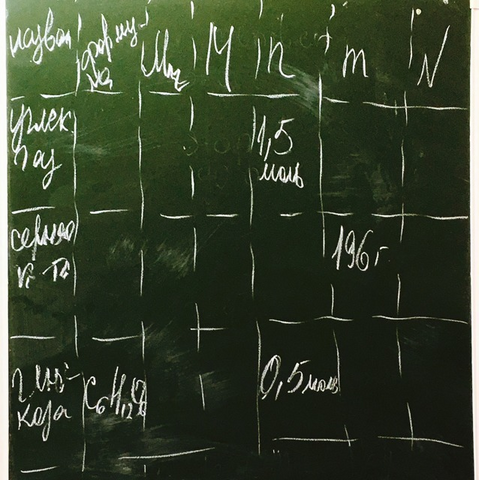 назван форму-ла Mr M n m N
углек газ 1,5 моль
серная к-та 196 г
глю-коза C6H12O6 0,5 моль